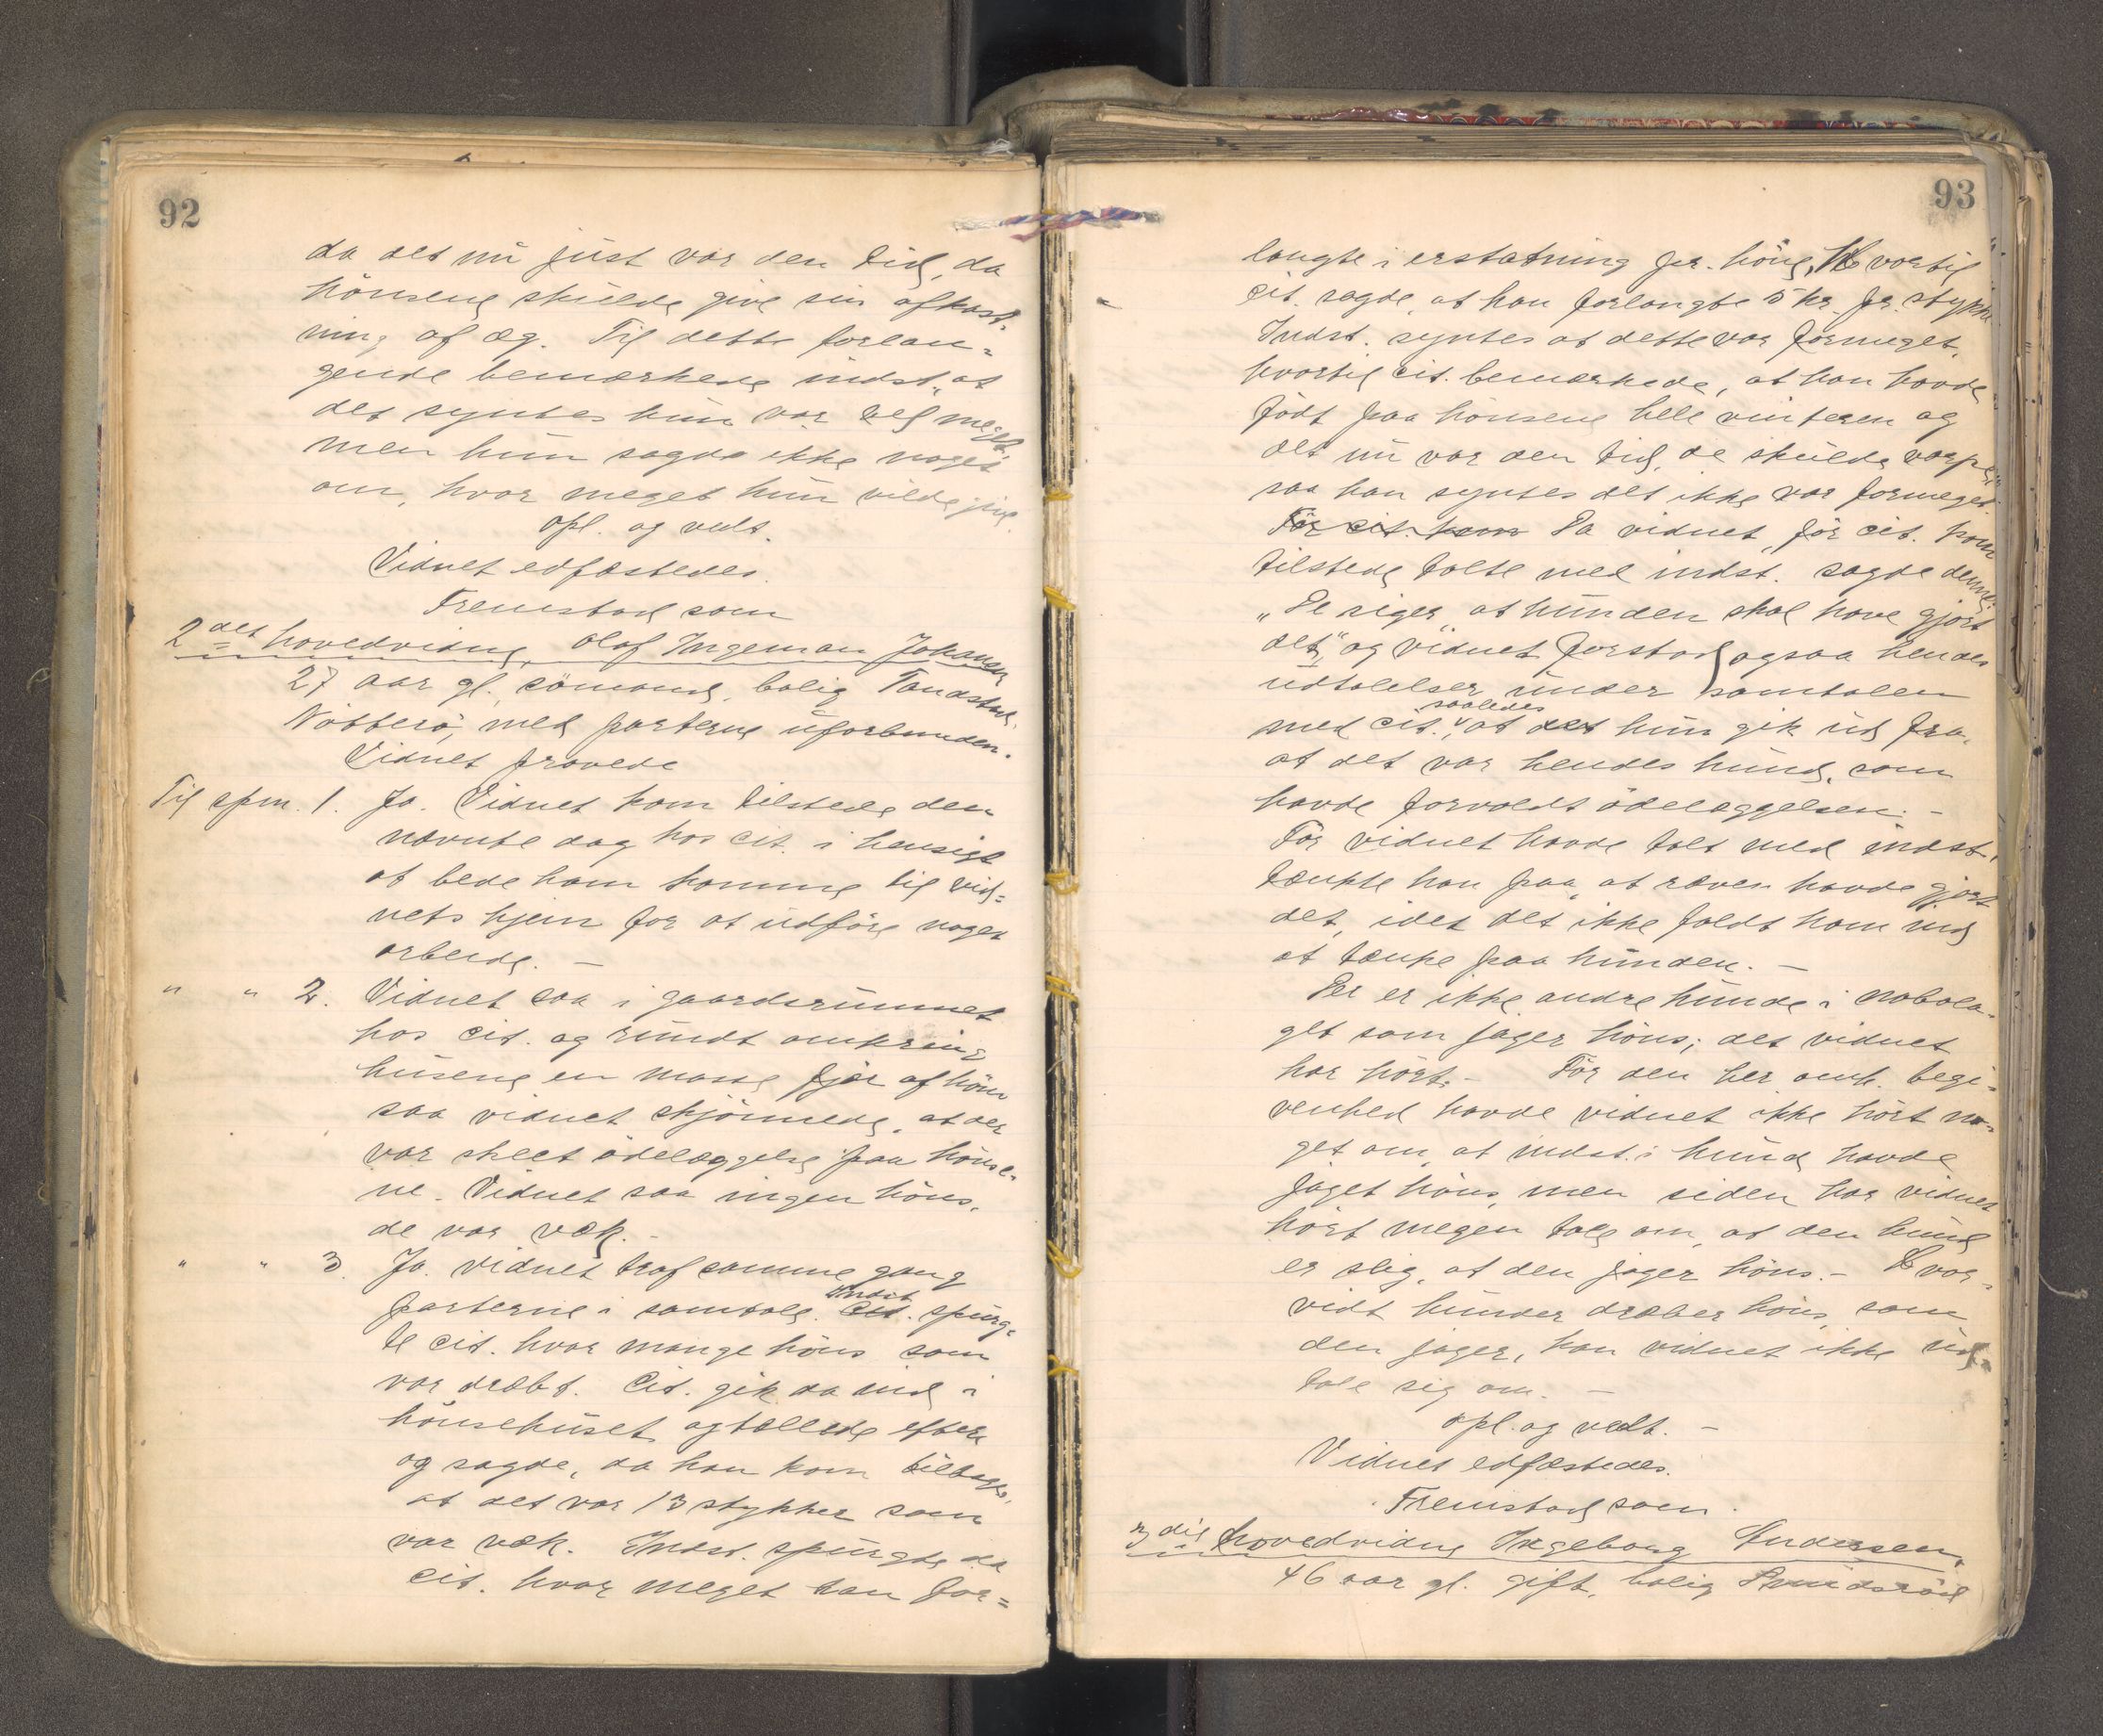 92
da det nu just var den tid, da
hönsene skulde give sin afkast-
ning af æg. Til dette forlan-
gende bemærkede indst., at
det syntes hun var vel meget,
men hun sagde ikke noget
om, hvor meget hun vilde give.
Opl. og vedt.
Vidnet edfæstedes.
Fremstod som
2det hovedvidne, Olaf Ingeman Johansen
27 aar gl. sömand, bolig
Nötterö, med parterne uforbunden.
Vidnet provede
Til spm. 1. Ja. Vidnet kom tilstede den
nævnte dag hos cit. i hensigt
at bede ham komme til vid-
nets hjem for at udföre noget
arbeide. —
" " 2. Vidnet saa i gaardsrummet
hos cit. og rundt omkring
husene en masse fjær af höns
saa vidnet skjönnede, at der
var skeet ödelæggelse paa hönse-
ne. Vidnet saa ingen höns,
de var væk. —
" " 3. Ja. Vidnet traf samme gang
parterne i samtale. Indst. Cit. spurg-
te cit. hvor mange höns som
var dræbt. Cit. gik da ind i
hönsehuset og tællede efter
og sagde, da han kom tilbage,
at det var 13 stykker som
var væk. Indst. spurgte da
cit. hvor meget han for-
93
langte i erstatning pr. höne, Hvortil
cit. sagde, at han forlangte 5 kr. pr. stykke
Indst. syntes at dette var formeget,
hvortil cit. bemærkede, at han havde
födt paa hönsene hele vinteren og
det nu var den tid, de skulde værpe,
saa han syntes det ikke var formeget.
För cit. kom Da vidnet, för cit. kom
tilstede talte med indst. sagde denne:
"De siger, at hunden skal have gjort
det", og vidnet forstod ogsaa hendes
udtalelser under samtalen
med cit. saaledes, at det hun gik ud fra,
at det var hendes hund, som
havde forvoldt ödelæggelsen. —
För vidnet havde talt med indst.
tænkte han paa, at ræven havde gjort
det, idet det ikke faldt ham ind
at tænke paa hunden. —
Der er ikke andre hunde i nabola-
get som jager höns; det vidnet
har hört. — För den her omh. begi-
venhed havde vidnet ikke hört no-
get om, at indst.s hund havde
jaget höns, men siden har vidnet
hört megen tale om, at den hund
er slig, at den jager höns. — Hvor-
vidt hunden dræber höns, som
den jager, kan vidnet ikke ud-
tale sig om. —
Opl. og vedt. —
Vidnet edfæstedes.
Fremstod som
3die hovedvidne Ingeborg Andersen,
46 aar gl. gift, bolig